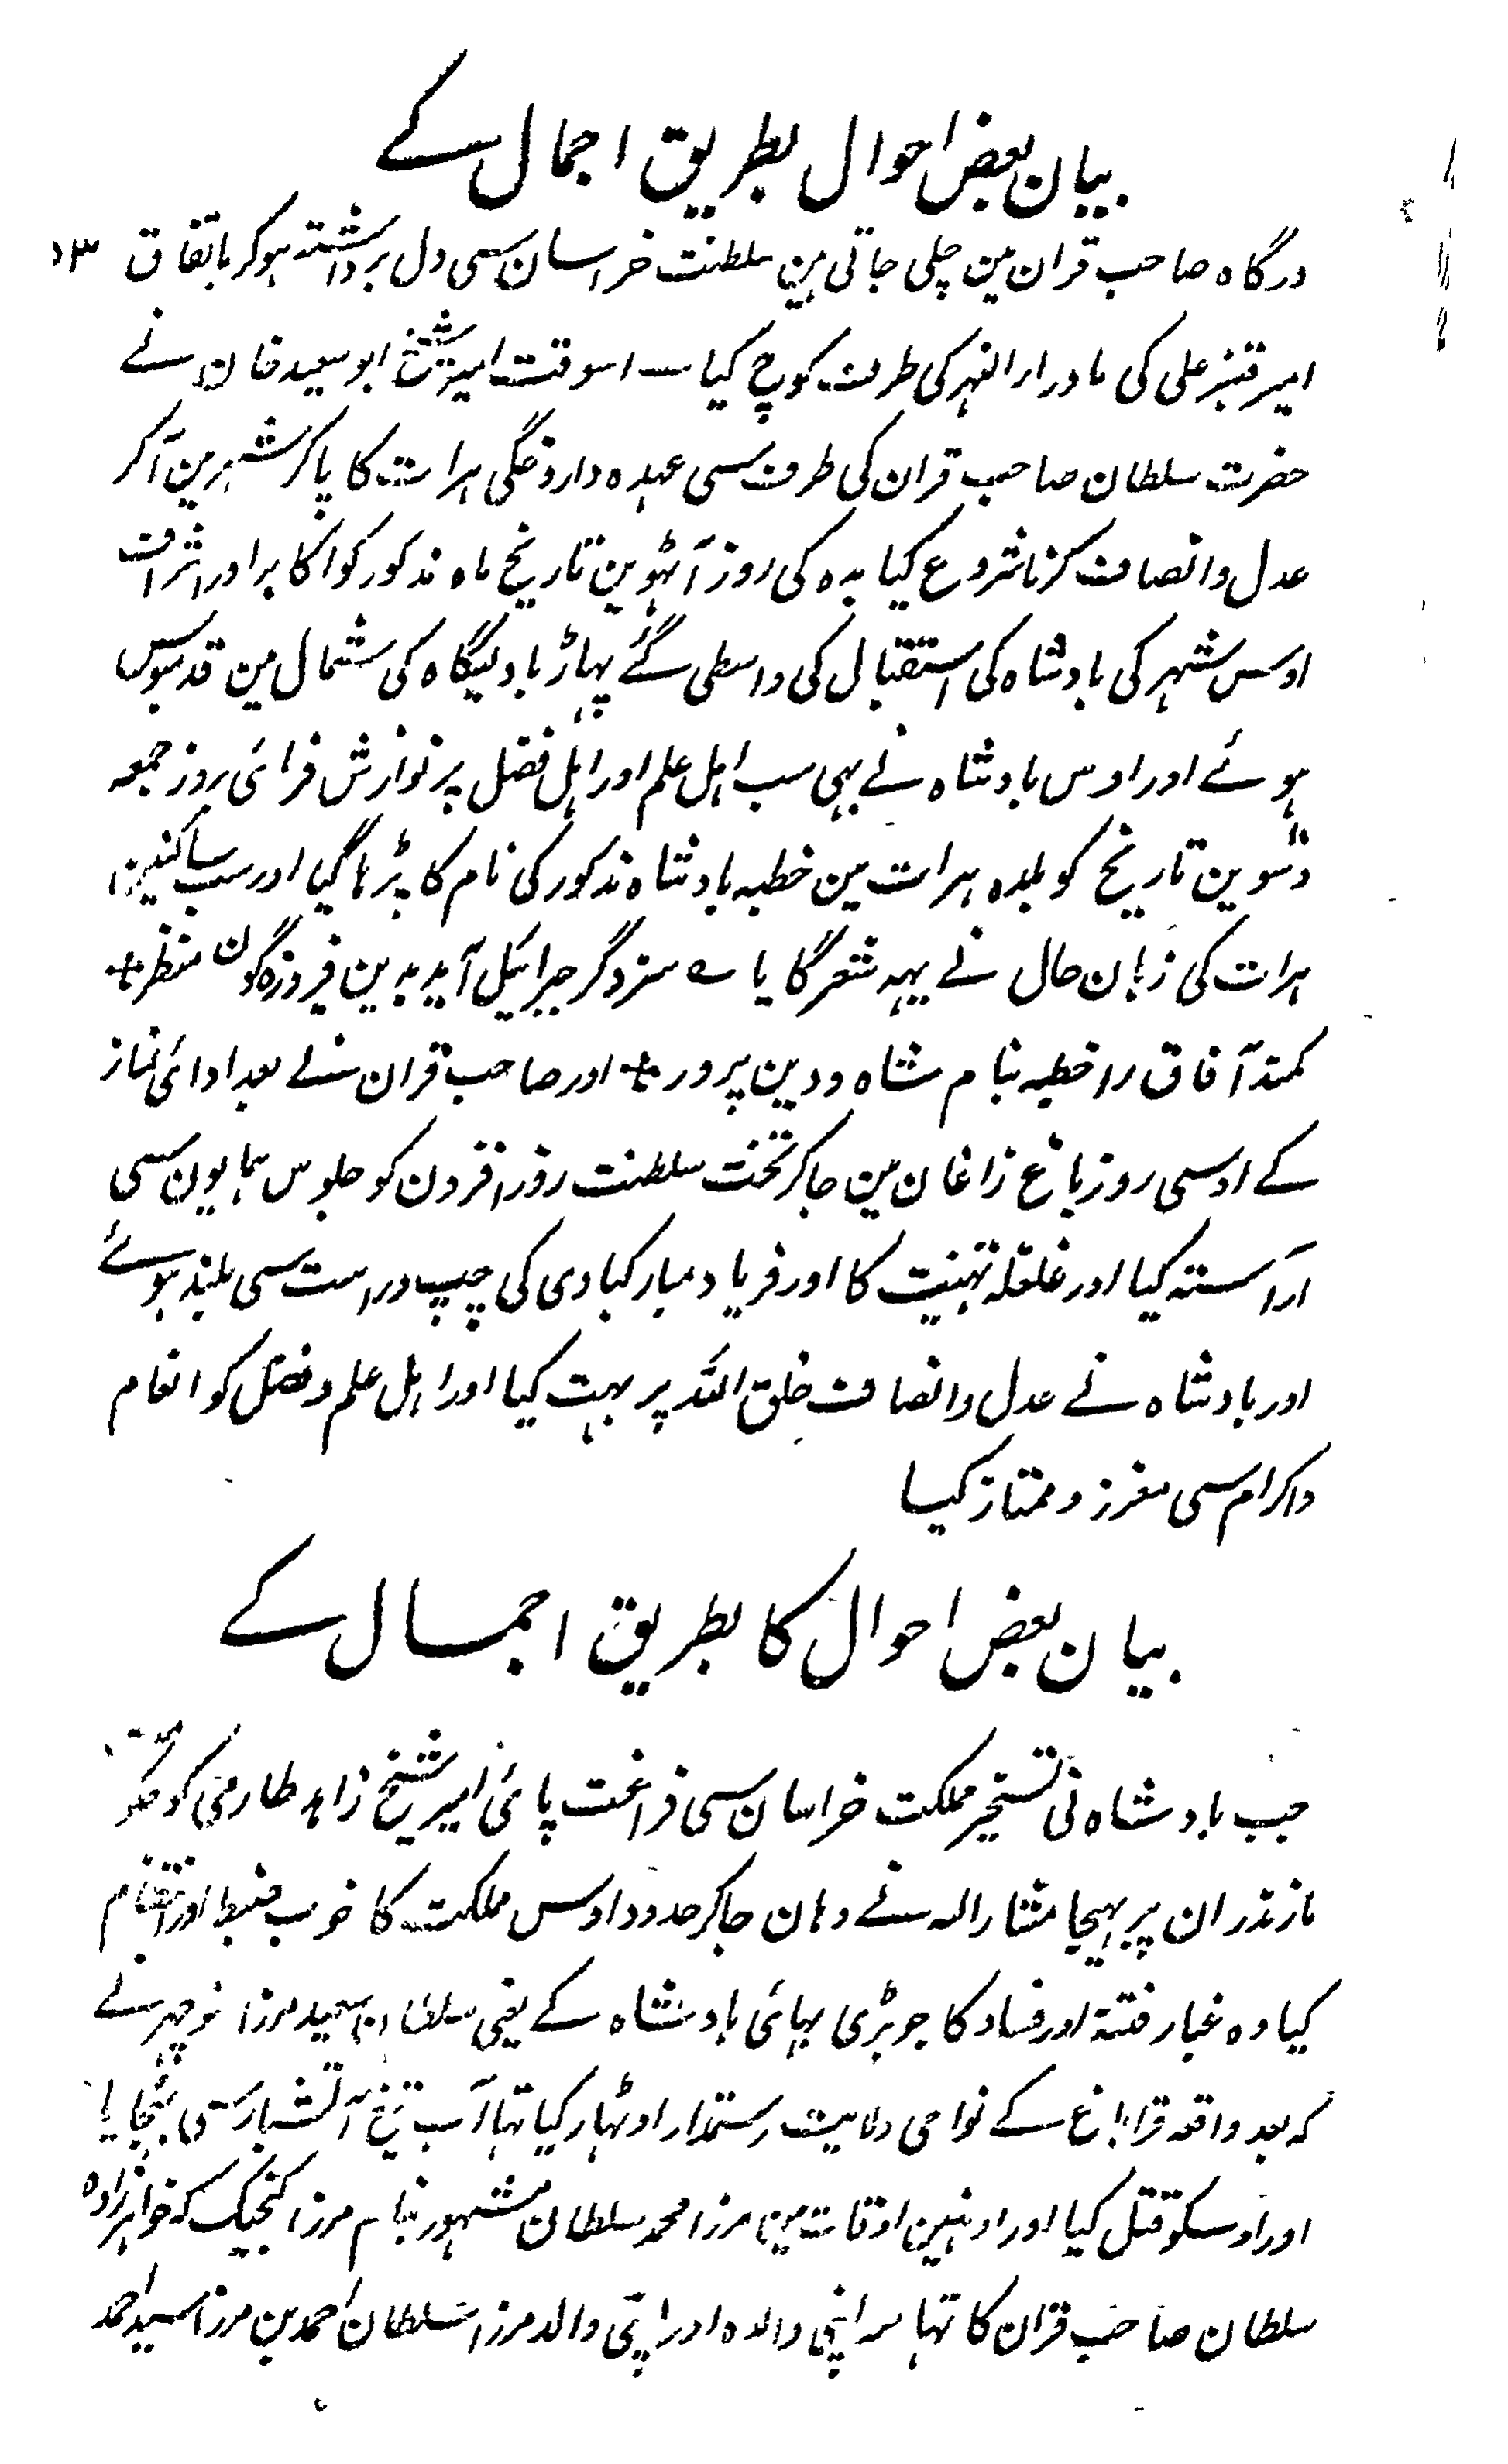 بیان بعض احوال بطریق اجمال کے
درگاہ صاحب قران مین چلی جاتی ہین سلطنت خراسان سی دل برداشتہ ہوکر باتفاق ۱۳
امیر قنبر علی کی ماورارالنہر کی طرف کوچ کیا ـــ اسوقت امیر شیخ ابوسعید خان نے
حضرت سلطان صاحب قران کی طرف سی عہدہ داروغگی ہرات کا پاکر شہر مین آکر
عدل وانصاف کرنا شروع کیا بدہ کی روز آٹہوین تاریخ ماہ مذکور کو اکابر اور اشراف
اوس شہر کی بادشاہ کی استقبال کی واسطی گئے پہاڑ بادبیگاہ کی شمال مین قدمبوس
ہوئے اور اوس بادشاہ نے بہی سب اہل علم اور اہل فضل پر نوازش فرمائی بروز جمعہ
دسوین تاریخ کو بلدہ ہرات مین خطبہ بادشاہ مذکور کی نام کا پڑہا گیا اور سب ساکنین
ہرات کی زبان حال نے یہہ شعر گایا ے سزد گر جبرائیل آید بدین فیروزہ گون منظر ٭
کمند آفاق را خطبہ بنام شاہ ودین پرور ٭ اور صاحب قران نے بعد ادائی نماز
کے اوسی روز باغ زاغان مین جاکر تخت سلطنت روز افزون کو جلوس ہمایون سی
آراستہ کیا اور غلغلہ تہنیت کا اور فریاد مبارکبادی کی چپ وراست سی بلند ہوئے
اور بادشاہ نے عدل وانصاف خلق اللہ پر بہت کیا اور اہل علم وفضل کو انعام
واکرام سی معزز وممتاز کیا
بیان بعض احوال کا بطریق اجمال کے
جب بادشاہ نی تسخیر مملکت خراسان سی فراغت پائی امیر شیخ زاہد طارمی کو
مازندران پر بہیجا مشارالہ نے وہان جاکر حدود اوس مملکت کا خوب ضبط اور انتظام
کیا وہ غبار فتنہ اور فساد کا جو بڑی بہائی بادشاہ کے یعنی سلطان سعید مرزا منوچہر نے
کہ بعد واقعہ قراباغ کے نواحی ولایت رستمدار اوٹہار کیا تہا آب تیغ آتشبار سی بجہایا
اور اوسکو قتل کیا اور اونہین اوقات مین مرزا محمد سلطان مشہور بنام مرزا کنجیک کہ خواہرزادہ
سلطان صاحب قران کا تہا سہ اپنی والدہ اور اپنی والد مرزا سلطان احمد بن مرزا سید احمد